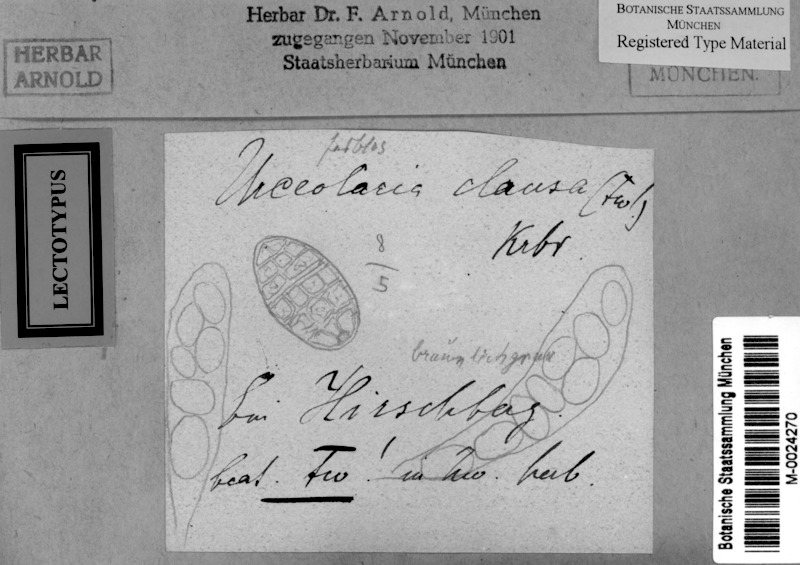 Herbar Dr. F. Arnold, München
zugegangen November 1901
Staatsherbarium München
HERBAR
ARNOLD
BOTANISCHE STAATSSAMMLUNG
MÜNCHEN
Registered Type Material
MÜNCHEN.
LECTOTYPUS
farblos
Urceolaria clausa (Fw.)
Krbr.
8
5
bräunlichgrau
bei Hirschberg.
beat. Fw! in hw. herb.
Botanische Staatssammlung München
M-0024270